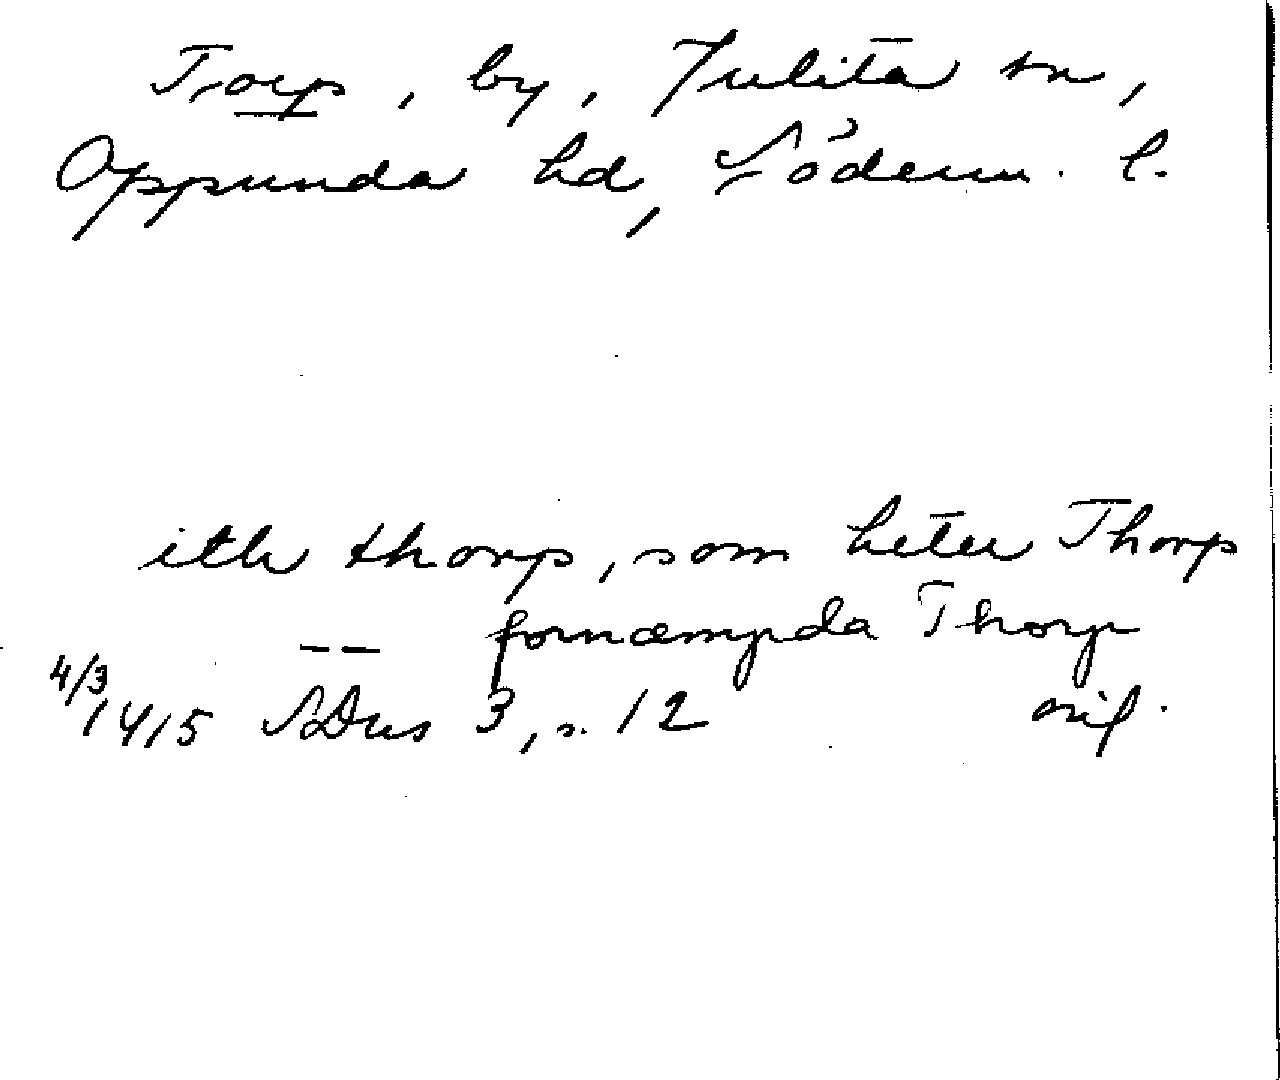 Torp, by, Julita sn,
Oppunda hd, Söderm. l.
ith thorp, som heter Thorp
-- fornæmpda Thorp
4/3 1415 SDns 3, s. 12 orig.